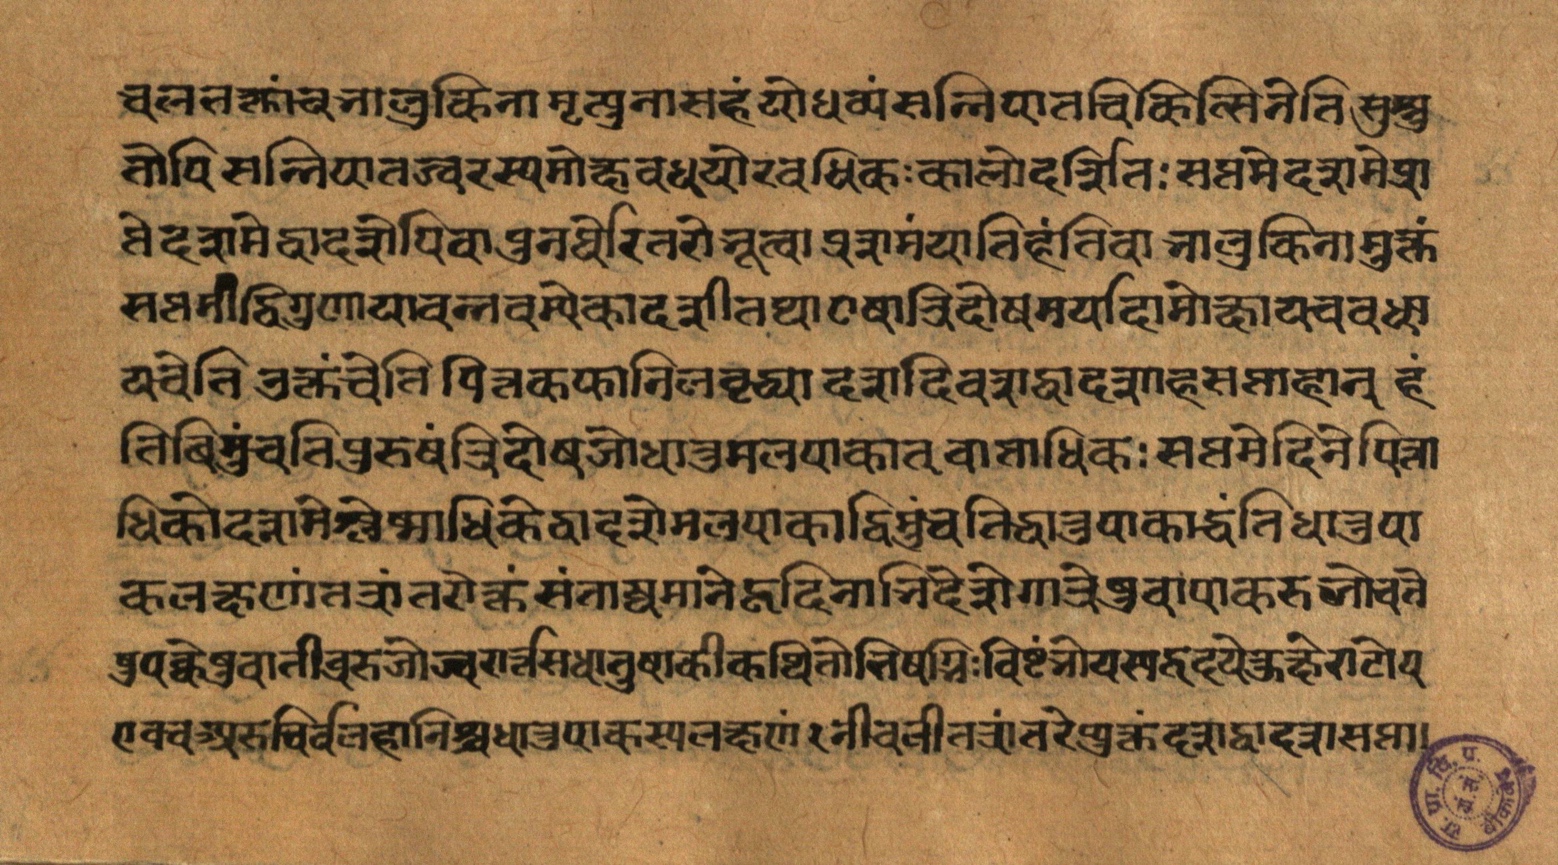 चलतक्तांच नालुकिना मृत्युनासहं योधव्यं सन्निपातचिकित्सिनेति सुश्रु
तोपि सन्निपातज्वरस्यमोक्षवधयोरवधिकः कालोदर्शितिः सप्तमेदशमेप्रा
प्तेदशमेद्वादशेपिवा पुनर्घोरितरोभूत्वा प्रशमंयातिहंतिवा भालुकिनामुक्तं
सप्तमीद्विगुणायावन्नवम्येकादशीतथा एषात्रिदोषमर्यादामोक्षायचवधा
यचेति उक्तंचेति पित्तकफानिलवृद्ध्या दशदिवशद्वादशाहसप्ताहान् हं
तिविमुंचतिपुरुषंत्रिदोषजोधातुमलपाकात् वाताधिकः सप्तमेदिनेपित्ता
धिकोदशमेश्लेष्माधिकेद्वादशेमलपाकाद्विमुंचतिद्वातुपाकाद्धंतिधातुपा
कलक्षणंतत्रांतरोक्तं संताष्यमानेहृदिनाभिदेशेगात्रेषुवापाकरुजोचते
षुपक्केषुवातीव्ररुजोज्वरार्त्तसधातुषाकीकथितोभिषग्भिः विष्टंभोयस्यहृदयेऊर्द्धेराटोप
एवच अरुचिर्बलहानिश्चधातुपाकस्यलक्षणं १ नीचलीतत्रांतरेप्युक्तं दशद्वादशसप्ता।
रा. प्रा. वि. प्र.
ग्रं. सं.
बीकानेर